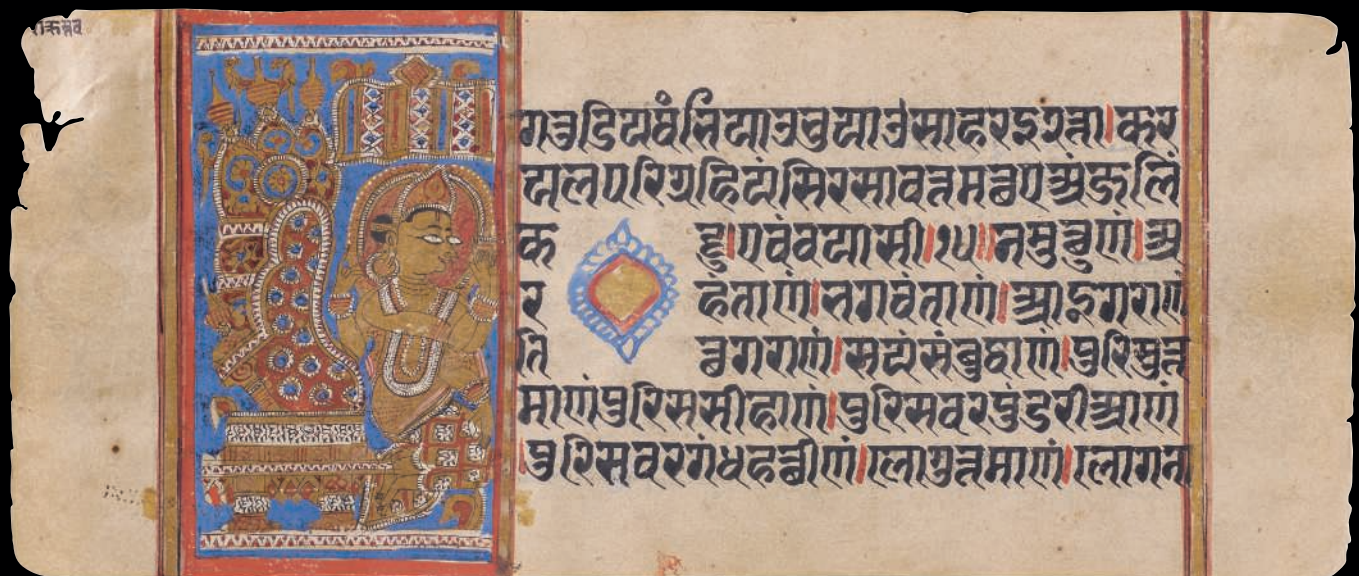 शक्रस्तव
गतुडियथंभियाउभुयाउसाहरइ२त्ता।कर
यलपरिग्गहियंसिरसावत्तमत्थएअंजलिं
कट्टु।एवंवयासी।१५॥नमुत्थुणं।अ
रहंताणं।भगवंताणं।आइगराणं
तित्थगराणं।सयंसंबुद्धाणं।पुरिसुत्त
माणंपुरिससीहाणं।पुरिसवरपुंडरीआणं
।पुरिसवरगंधहत्थीणं।लोगुत्तमाणं।लोगना